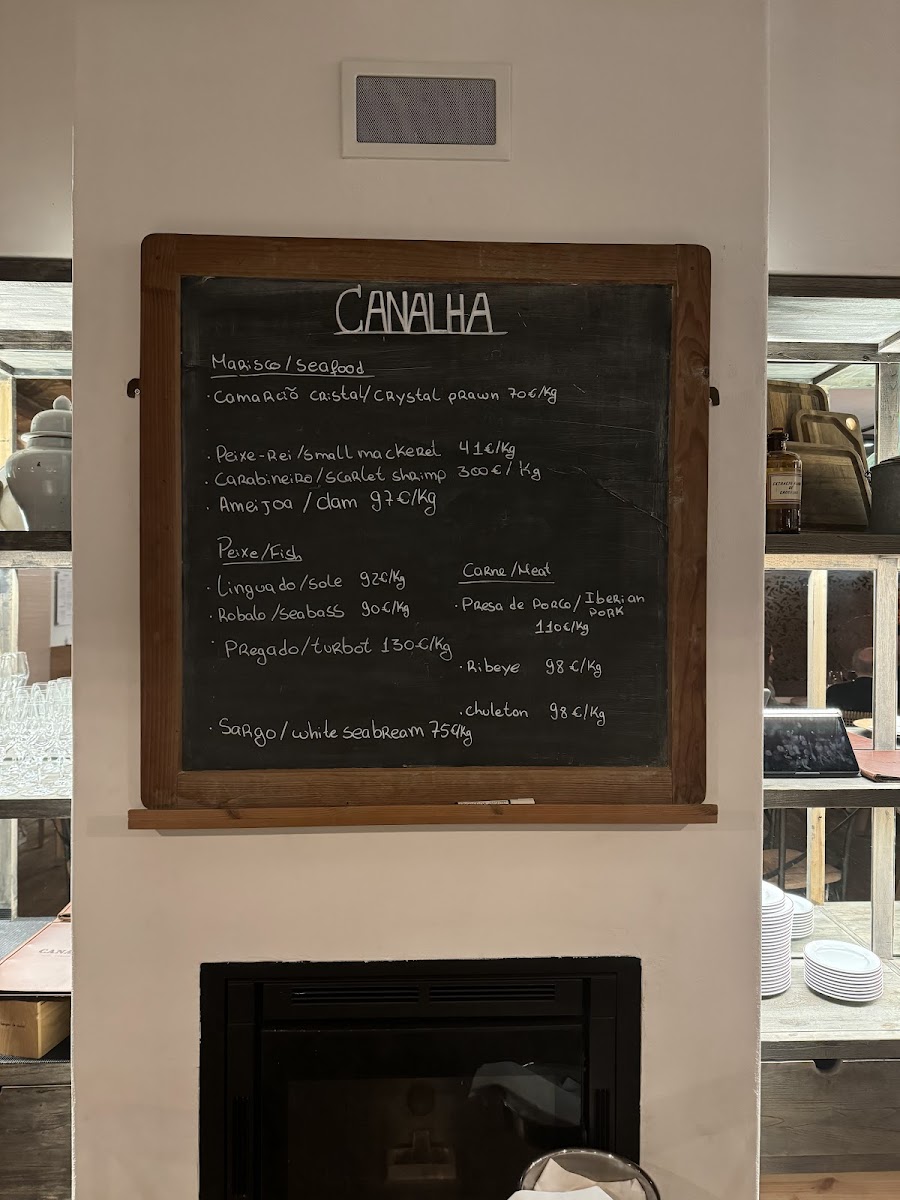 CANALHA
Marisco/Seafood
· Camarcão cristal/Crystal prawn 70€/kg
·
· Peixe-Rei/small mackerel 41€/kg
· Carabineiro/scarlet shrimp 300€/kg
· Ameijoa/clam 97€/kg
Peixe/Fish
· Linguado/sole 92€/kg
· Robalo/seabass 90€/kg
Pregado/turbot 130€/kg
· Sargo/white seabream 75€/kg
Carne/Meat
· Presa de porco/Iberian
pork
110€/kg
· Ribeye 98€/kg
· chuleton 98€/kg